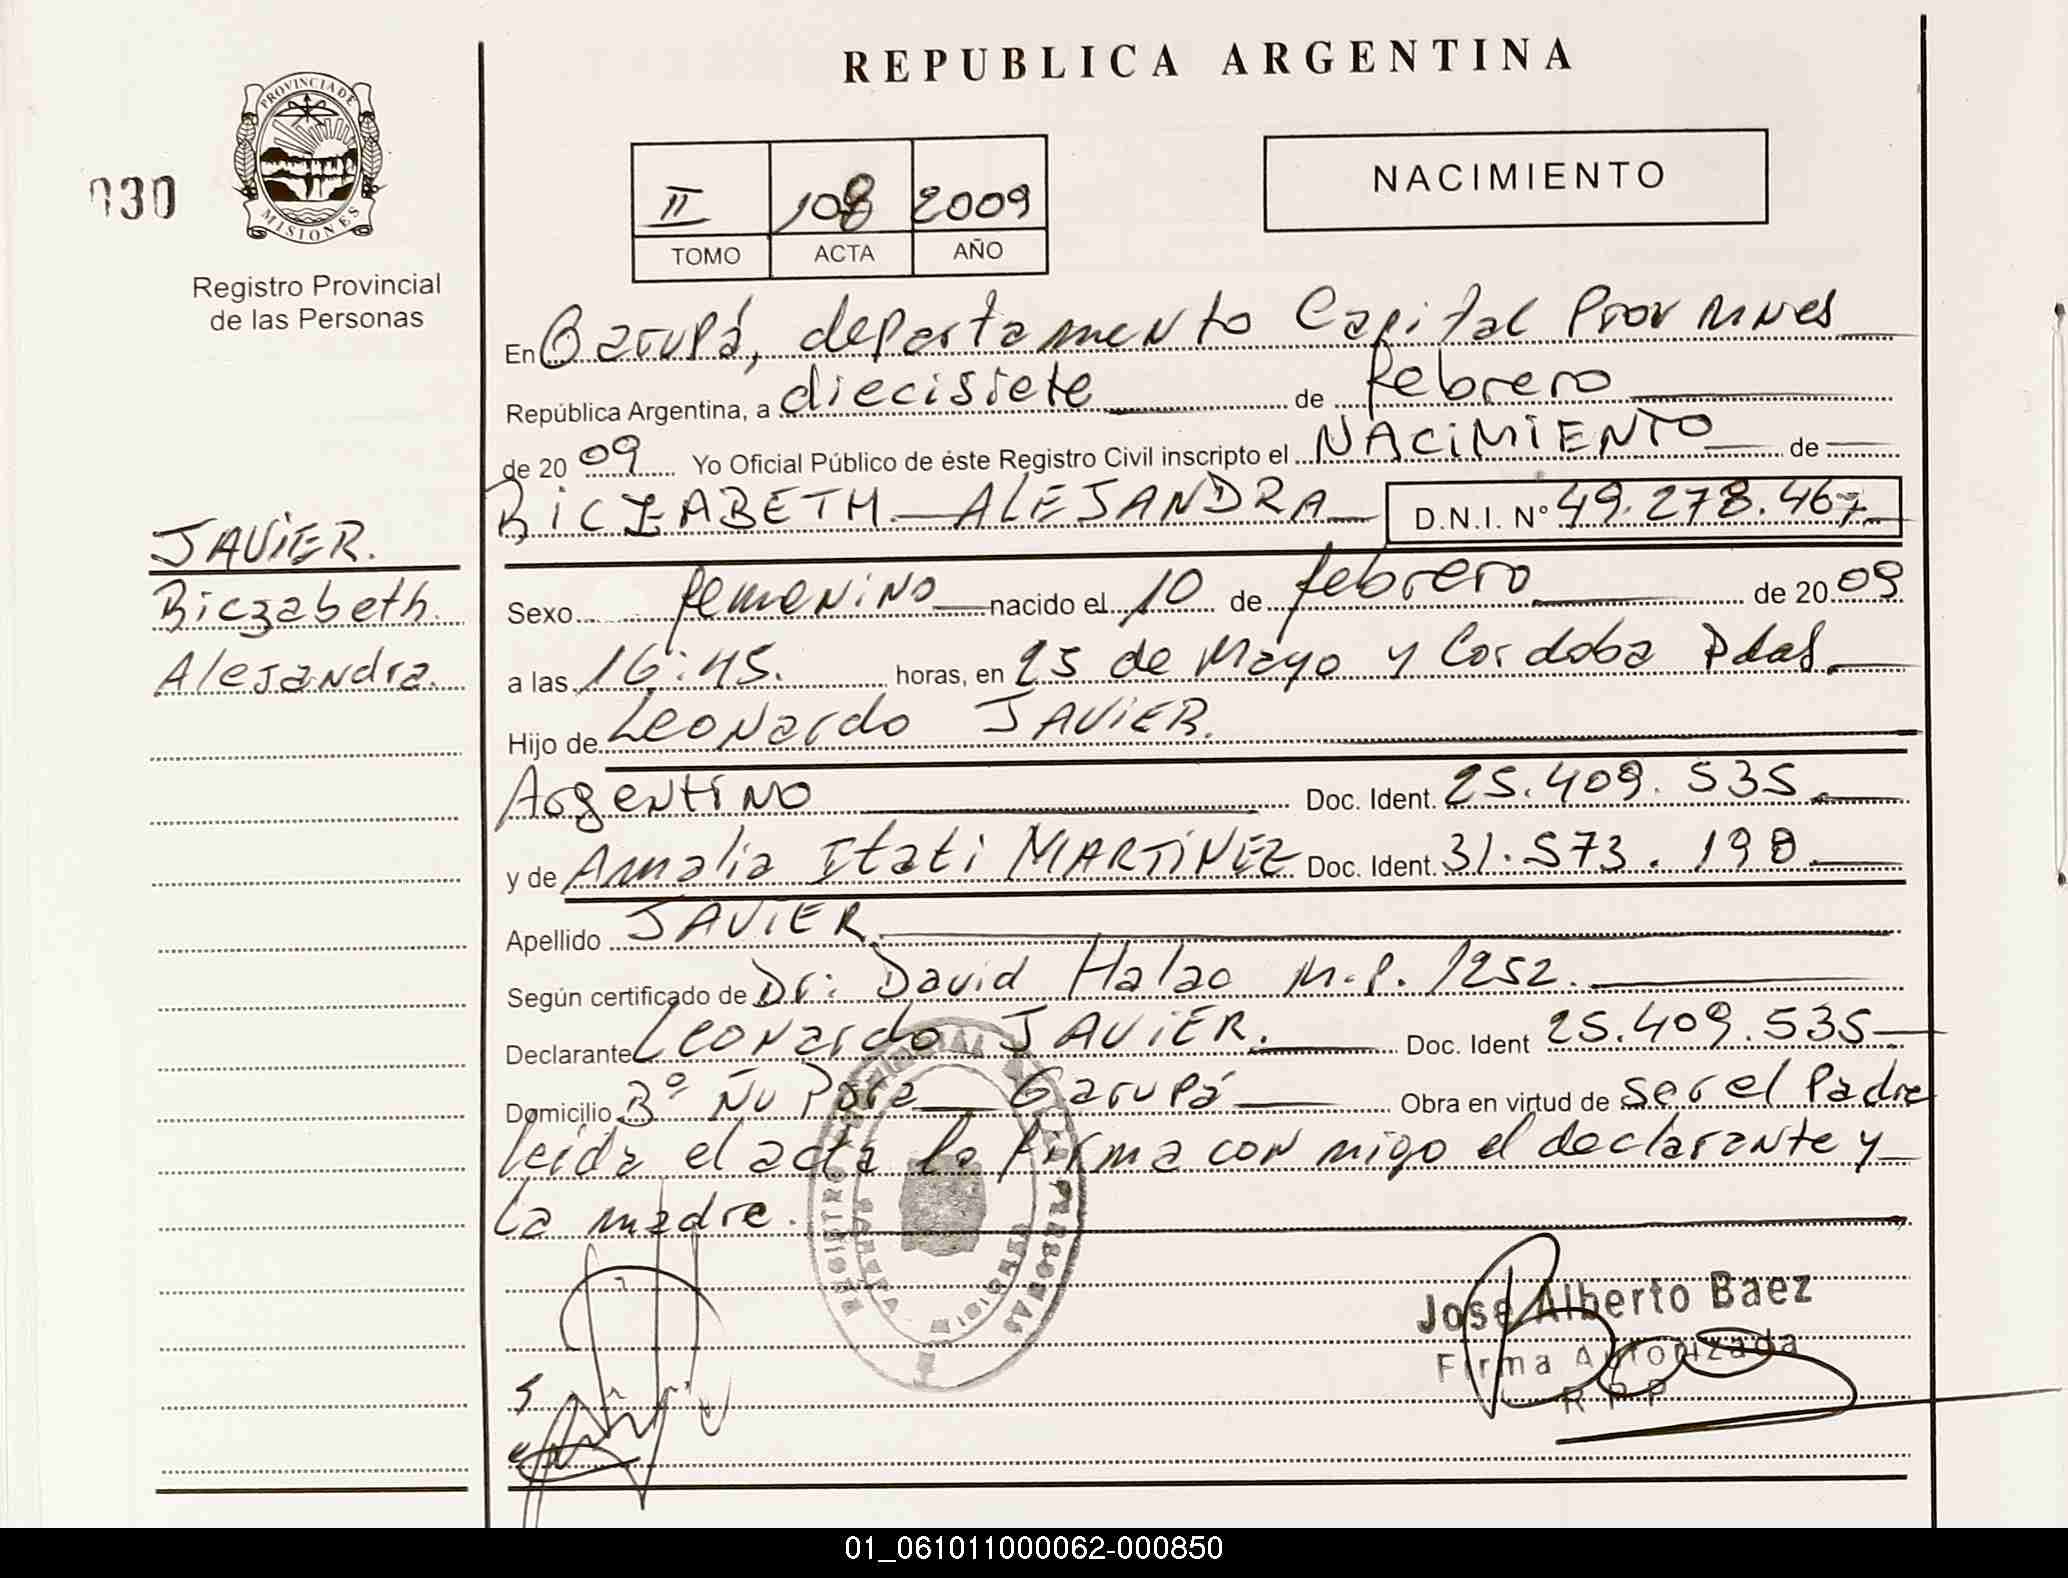 REPUBLICA ARGENTINA
PROVINCIA DE
MISIONES
030
Registro Provincial
de las Personas
II 108 2009
TOMO ACTA AÑO
NACIMIENTO
En Garupá, departamento Capital Prov
República Argentina, a diecisiete de febrero
de 2009 Yo Oficial Público de éste Registro Civil inscripto el NACIMIENTO de
BICZABETH ALEJANDRA D.N.I. Nº 49.278.467
JAVIER.
Biczabeth.
Alejandra.
Sexo femenino nacido el 10 de febrero de 2009
a las 16:45. horas, en 25 de Mayo y Cordoba Pdas.
Hijo de Leonardo JAVIER.
Argentino Doc. Ident. 25.409.535
y de Amalia Itati MARTINEZ Doc. Ident. 31.573.190
Apellido JAVIER
Según certificado de Dr: David Halac M.P. 1252.
Declarante Leonardo JAVIER. Doc. Ident 25.409.535
Domicilio Bº Ñu Pora Garupá Obra en virtud de ser el Padre
leida el acta la firma con migo el declarante y
la madre.
REGISTRO PROVINCIAL PERSONAS
Jose Alberto Baez
Firma Autorizada
RPP
01_061011000062-000850